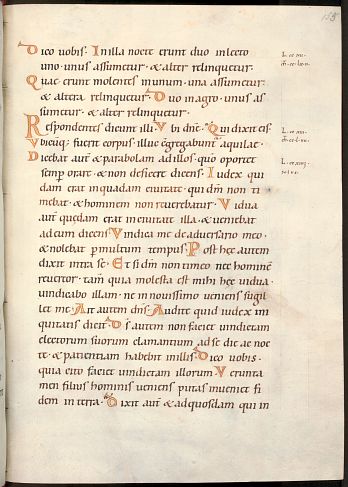 Dico vobis. In illa nocte erunt duo in lecto
uno. unus assumetur. & alter relinquetur.
Quae erunt molentes in unum. una assumetur.
& altera relinquetur. Duo in agro. unus as
sumetur. & alter relinquetur.
Respondentes dicunt illi. Ubi dne. Qui dixit eis.
Ubicuq; fuerit corpus. illuc congregabunt aquilae.
Dicebat aut & parabolam ad illos. quo oportet
semp orare & non deficere dicens. Iudex qui
dam erat in quadam civitate. qui dm non ti
mebat. & hominem non reverebatur. Vidua
aut quedam erat in civitate illa. & veniebat
ad eum dicens. Vindica me de adversario meo.
& nolebat p multum tempus. Post hec autem
dixit intra se. Et si dm non timeo nec hominem
revereor. tam quia molesta est mihi hec vidua.
vindicabo illam. ne in novissimo veniens sugil
let me. Ait autem dns. Audite quid iudex in
iquitatis dicit. Ds autem non faciet vindictam
electorum suorum clamantium ad se die ac noc
te. & patientiam habebit in illis. Dico vobis.
quia cito faciet vindictam illorum. Verunta
men filius hominis veniens putas inveniet fi
dem in terra. Dixit aut & ad quosdam qui in